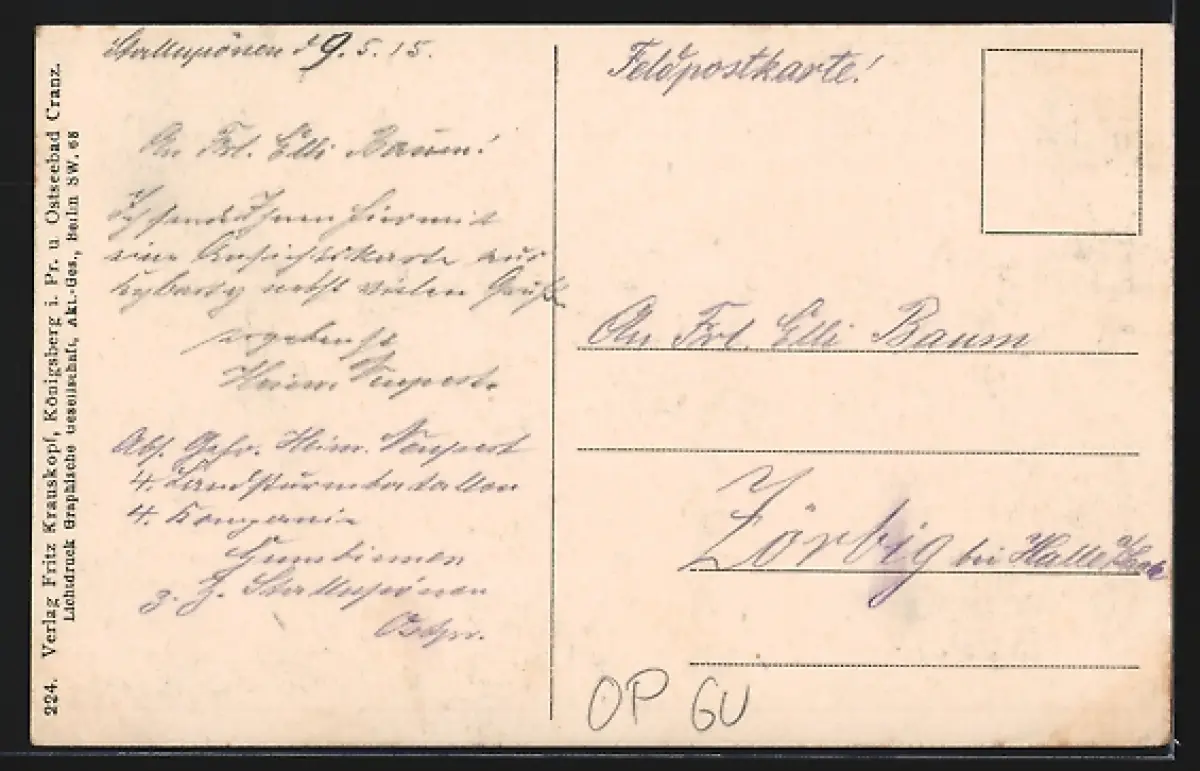 Stallupönen d 9.5.15.
An Frl. Elli Baum!
Ich sende Ihnen hiermit
eine Ansichtskarte aus
Kybarty nebst vielen Grüße
ergebenst
Heinr. Neupert.
Abs. Gefr. Heinr. Neupert
4. Landsturmbatallon
4. Kompanie
Gumbinnen
z. Z. Stallupönen
Ostpr.
224. Verlag Fritz Krauskopf, Königsberg i. Pr. u. Ostseebad Cranz.
Lichtdruck Graphische Gesellschaft, Akt.-Ges., Berlin SW. 68
Feldpostkarte!
An Frl. Elli Baum
Zörbig bei Halle
OP GU